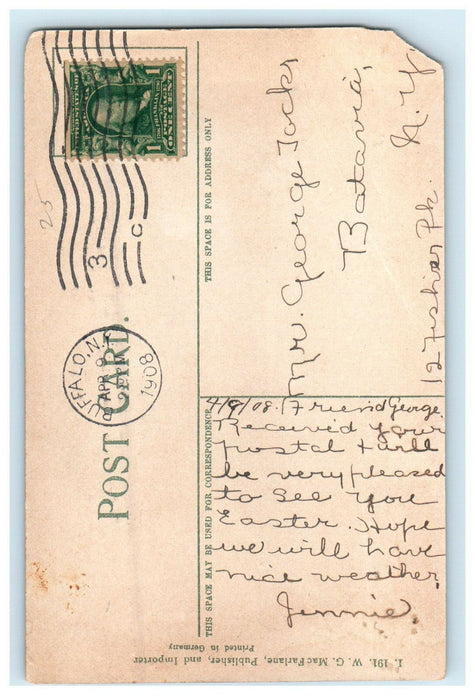 UNITED STATES OF AMERICA
1 1
POSTAGE
ONE CENT
25
3
C
BUFFALO, N.Y.
APR 9
1908
POST CARD.
THIS SPACE IS FOR ADDRESS ONLY
Mr. George Jocks
Batavia,
N.Y.
12 Fisher Pk.
THIS SPACE MAY BE USED FOR CORRESPONDENCE
4/9/08. Friend George.
Received your
postal + will
be very pleased
to see you
Easter. Hope
we will have
nice weather.
Jennie.
I. 191. W. G. MacFarlane, Publisher, and Importer
Printed in Germany